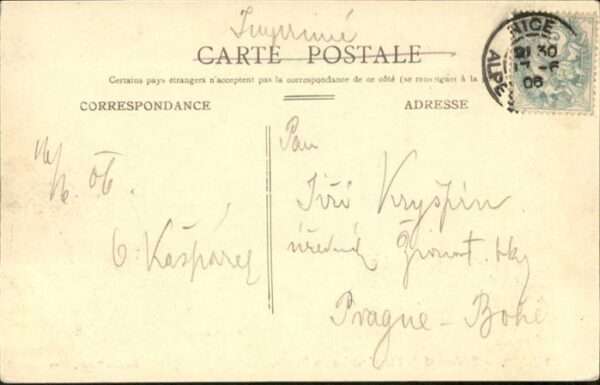 Imprimé
CARTE POSTALE
Certains pays étrangers n'acceptent pas la correspondance de ce côté (se renseigner à la
CORRESPONDANCE
ADRESSE
NICE
ALPE
30
06
06.
Kašpárek
Pan
Jiří Kryšpín
úředník Živnost. bky
Prague - Bohê